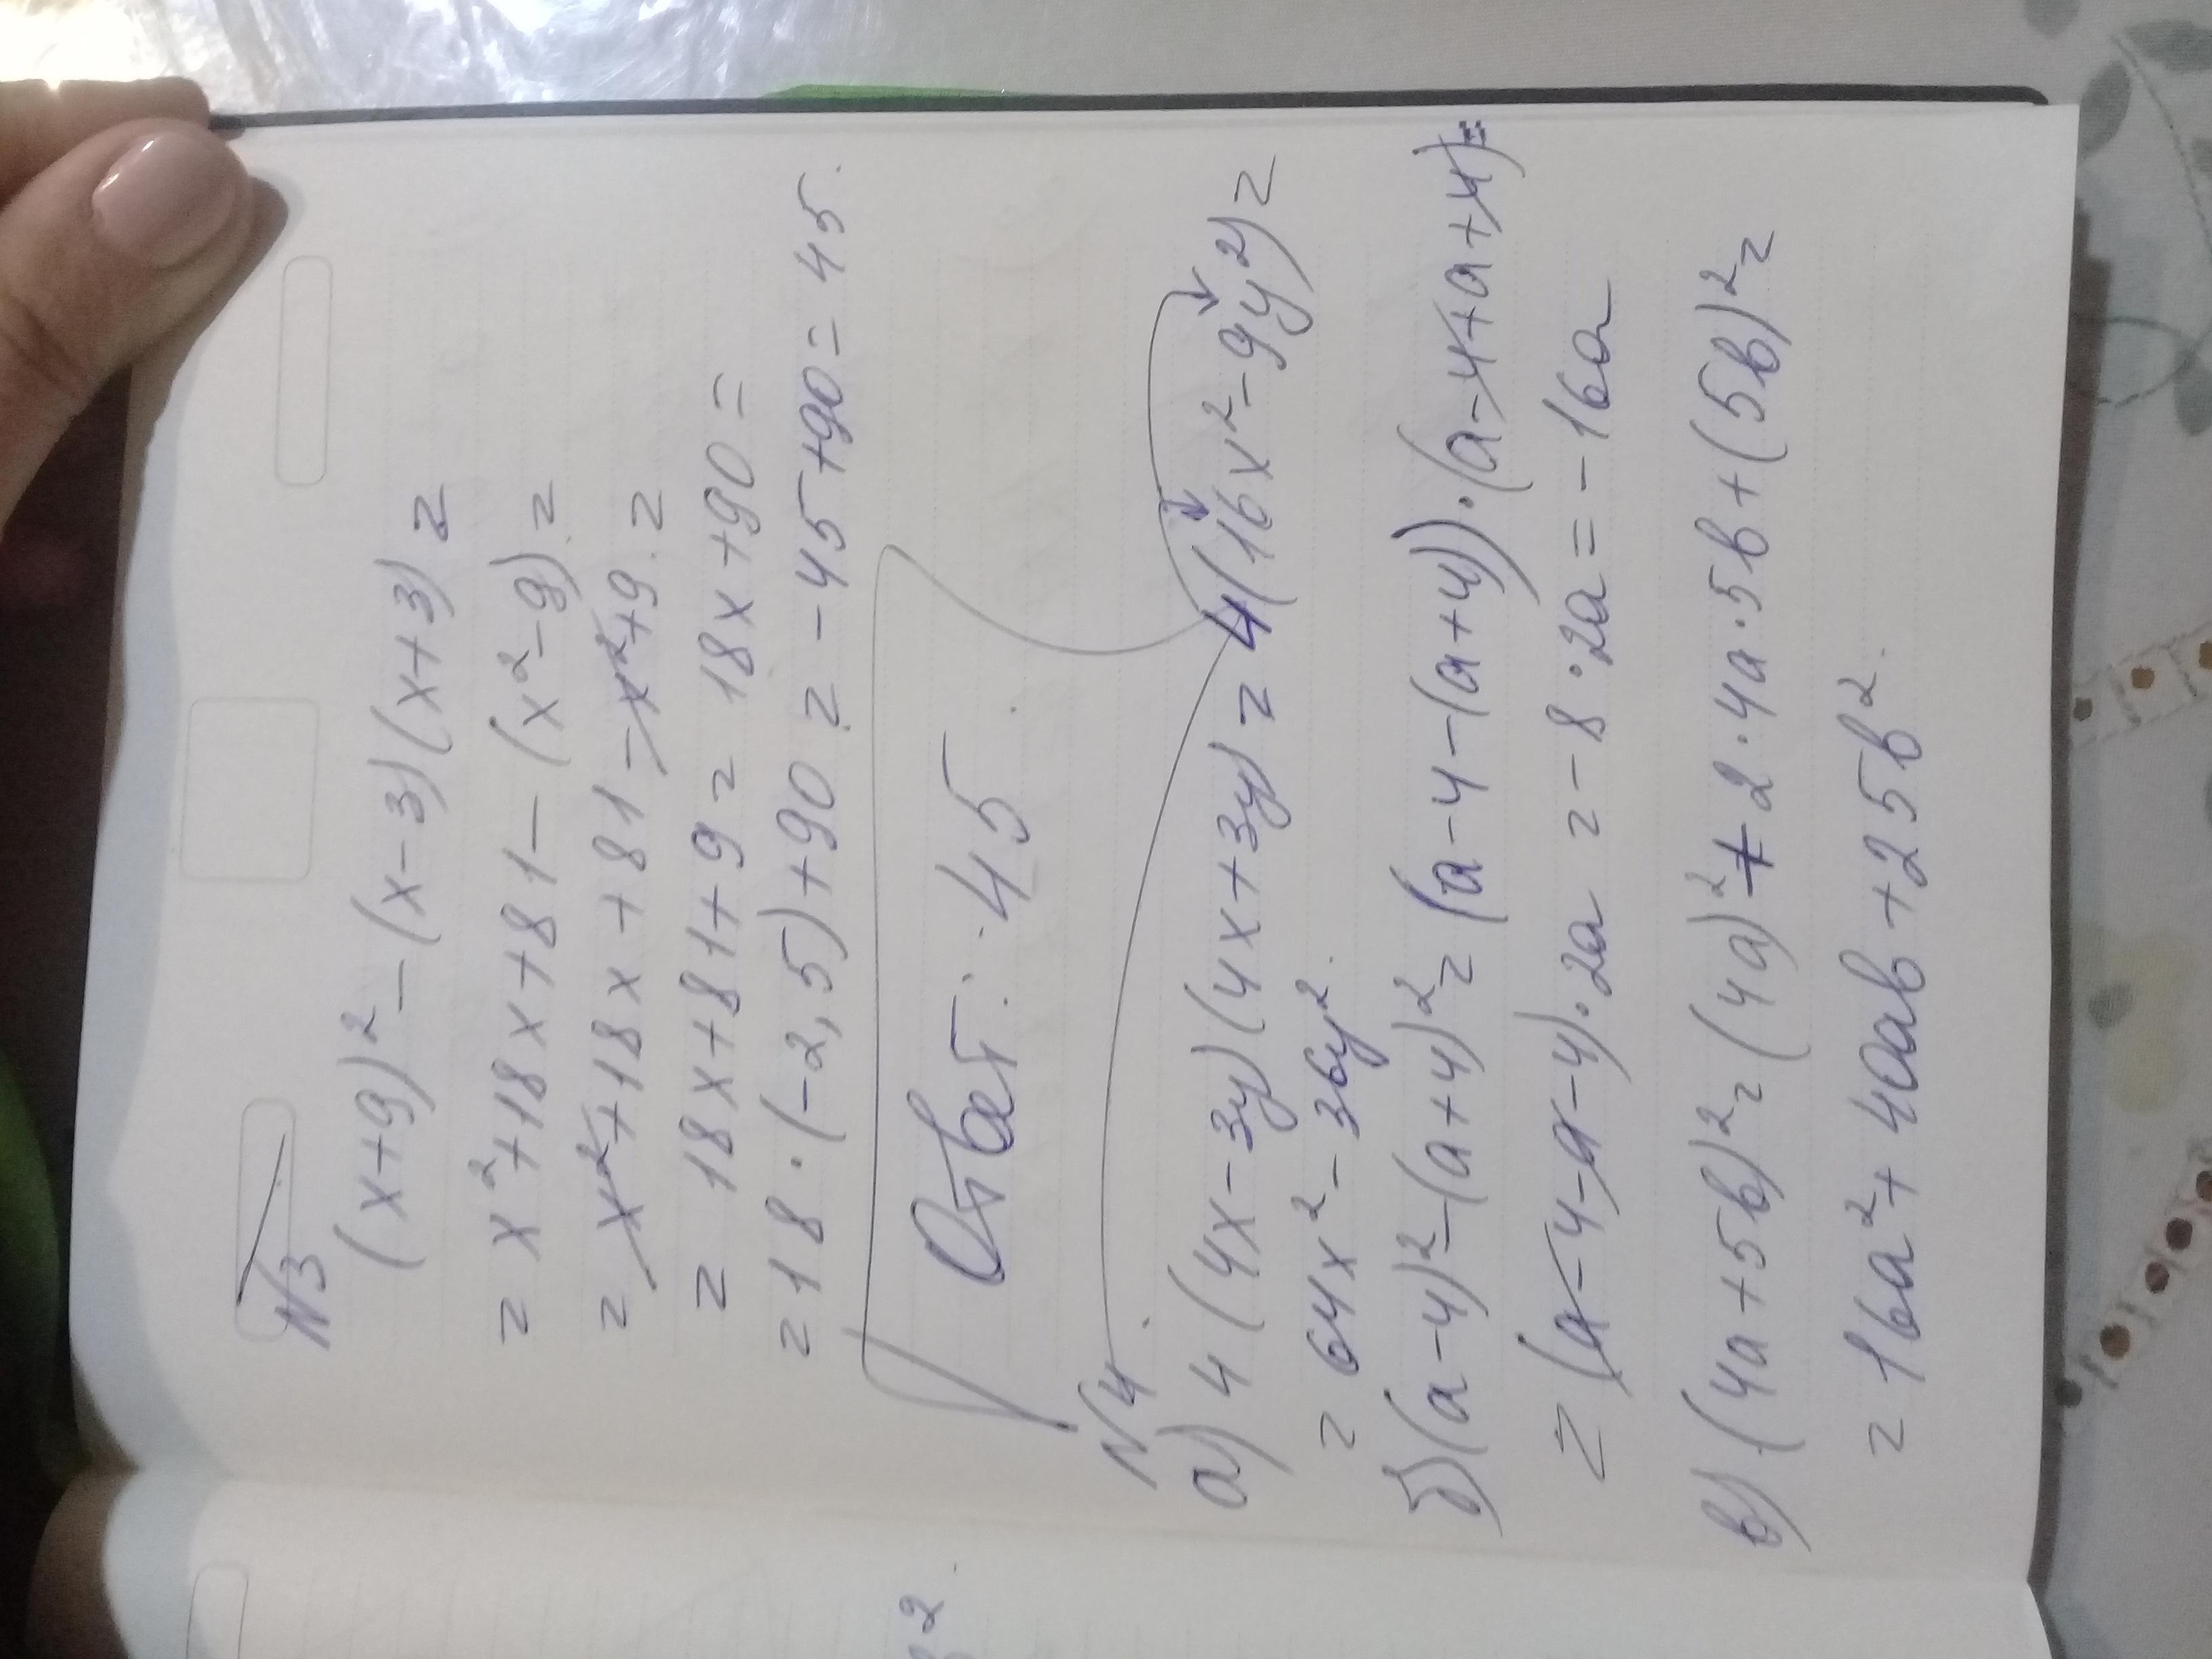 N3
(x+9)² – (x–3)(x+3) =
= x²+18x+81–(x²–9) =
= x²+18x+81–x²+9 =
= 18x+81+9 = 18x+90 =
= 18·(–2,5)+90 = –45+90 = 45.
Ответ: 45
N4.
а) 4(4x–3y)(4x+3y) = 4(16x²–9y²) =
= 64x²–36y².
б) (a–4)²–(a+4)² = (a–4–(a+4))·(a–4+a+4) =
= (a–4–a–4)·2a = –8·2a = –16a
в) (4a+5b)² = (4a)²+2·4a·5b+(5b)² =
= 16a²+40ab+25b².
2.